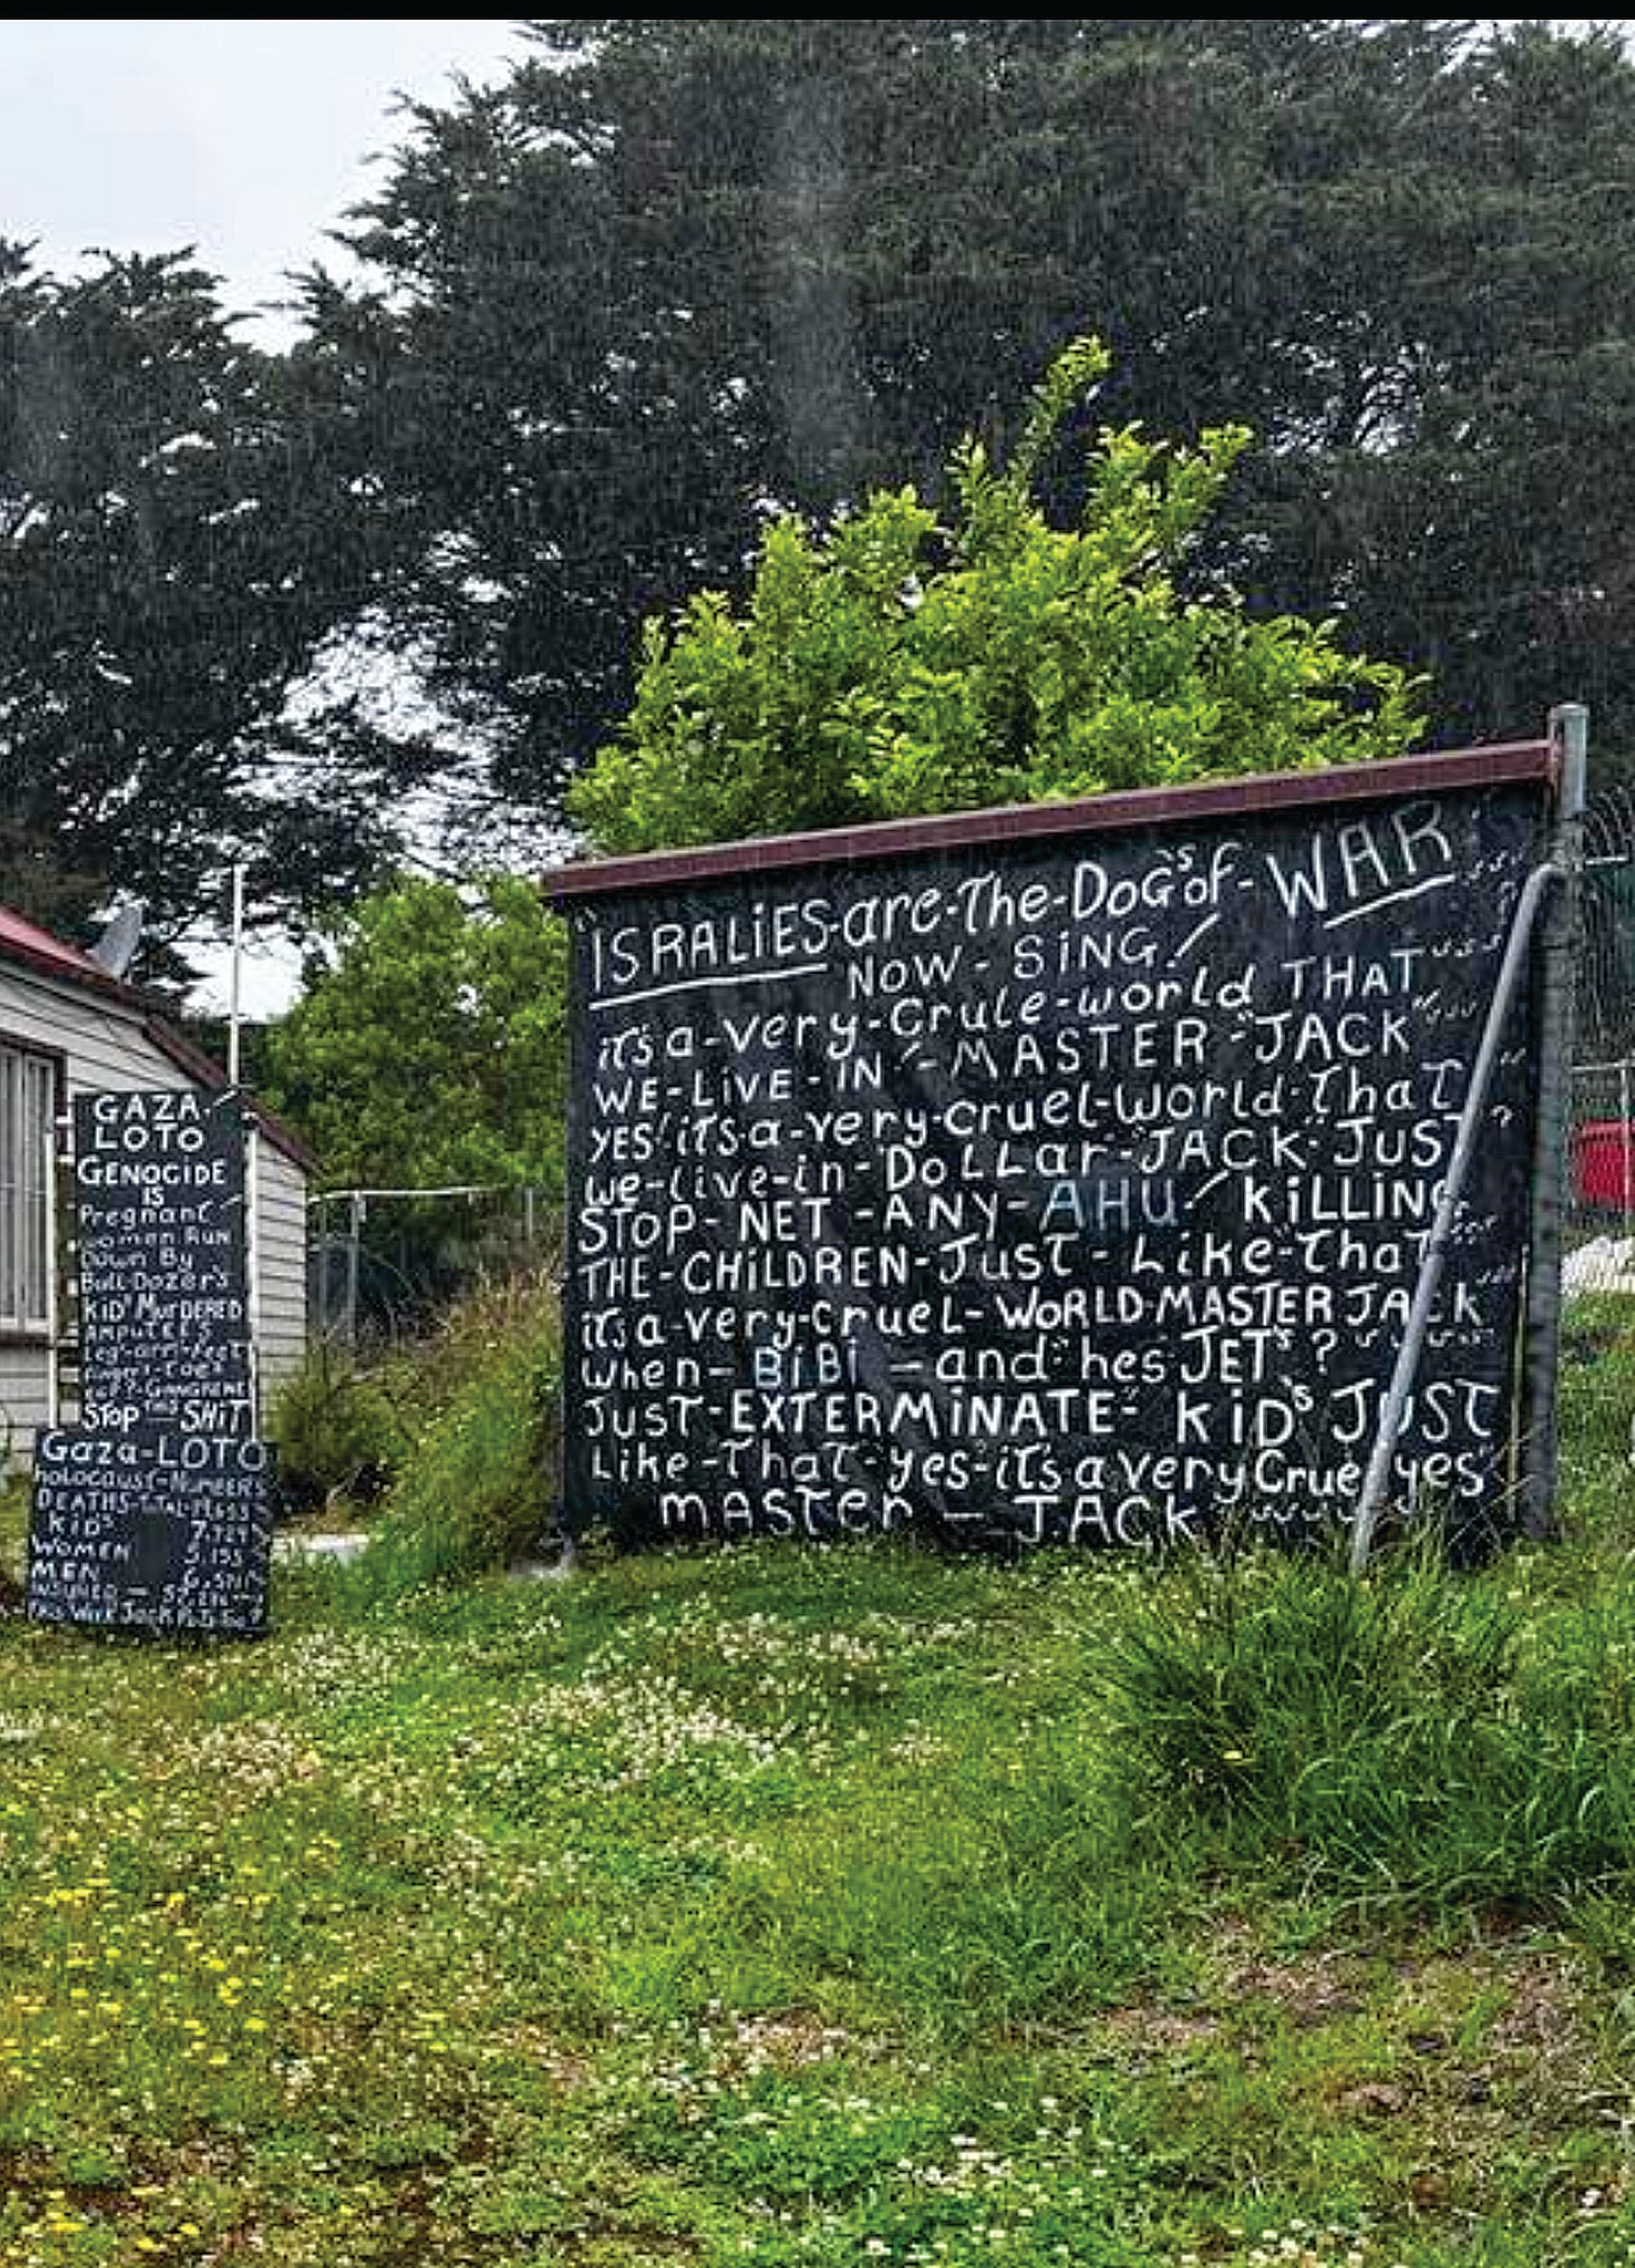 GAZA
LOTO
GENOCIDE
IS
Pregnant
women Run
Down By
Bull-Dozer's
KID'S MURDERED
AMPUTEES
Leg-arm-feet
finger-toes
GANGRENE
STOP THIS SHIT
Gaza-LOTO
HOLOCAUST-NUMBERS
DEATHS-TOTAL
KIDS
WOMEN
MEN
INJURED
This Week Jack
"ISRALIES-are-The-DOG'S of-WAR
NOW-SING!
it's a-very-Crule-world THAT
WE-LIVE-IN-MASTER "JACK"
YES! it's-a-very-cruel-world-That
we-live-in-DoLLar-"JACK" JUST
STOP-NET-ANY-AHU KILLING
THE-CHILDREN-Just-Like-That
it's a-very-cruel-WORLD-MASTER JACK
when-BiBi-and "hes JET's?
JUST-EXTERMINATE-KID's JUST
Like-That-yes-it's a very Cruel yes
MASTER-JACK